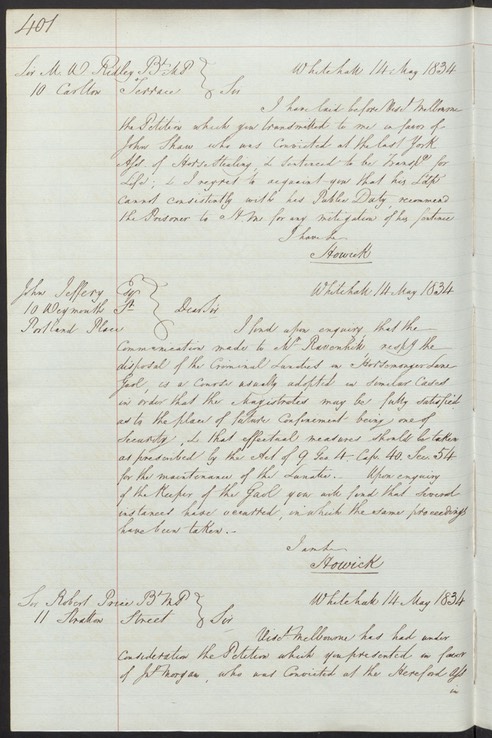 401
Sir M. W. Ridley Bt. MP Whitehall 14 May 1834
10 Carlton Terrace Sir
I have laid before Visct. Melbourne
the Petition which you transmitted to me in favor of
John Shaw who was Convicted at the last York
Ass. of Horse Stealing & Sentenced to be Transpd. for
Life; & I regret to acquaint you that his Ldp.
cannot consistently with his Public Duty, recommend
the Prisoner to H M. for any mitigation of his Sentence
I have &c
Howick
John Jeffery Esqr. Whitehall 14 May 1834
10 Weymouth St. Dear Sir
Portland Place
I find upon enquiry that the
Communication made to Mr. respg. the
disposal of the Criminal Lunatics in Horsemonger Lane
Gaol, is a Course usually adopted in similar Cases
in order that the Magistrates may be fully satisfied
as to the place of future Confinement being one of
Security, & that effectual measures should be taken
as prescribed by the Act of 9 Geo 4 Cap. 40. Sec. 54
for the maintenance of the Lunatic. Upon enquiry
of the Keeper of the Gaol you will find that several
instances have occurred, in which the same proceedings
have been taken.
I am &c
Howick
Sir Robert Price Bt. MP Whitehall 14 May 1834
11 Stratton Street Sir
Visct. Melbourne has had under
Consideration the Petition which you presented in favor
of Jno. Morgan, who was Convicted at the Hereford Ass
in